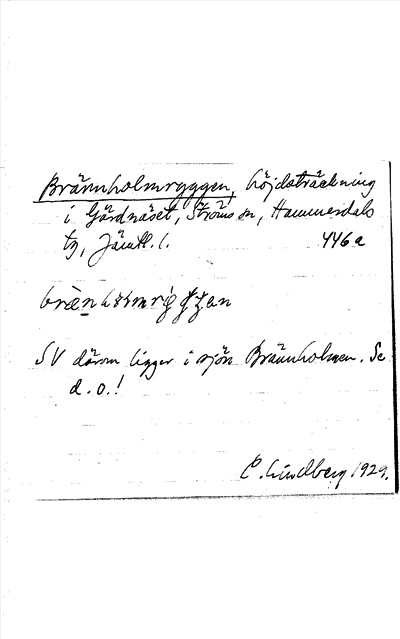 Brännholmryggen, höjdsträckning
i Gärdnäset, Ströms sn, Hammerdals
tg, Jämtl. l. 446a
SV därom ligger i sjön Brännholmen. Se
d. o.!
C. Lindberg 1929.